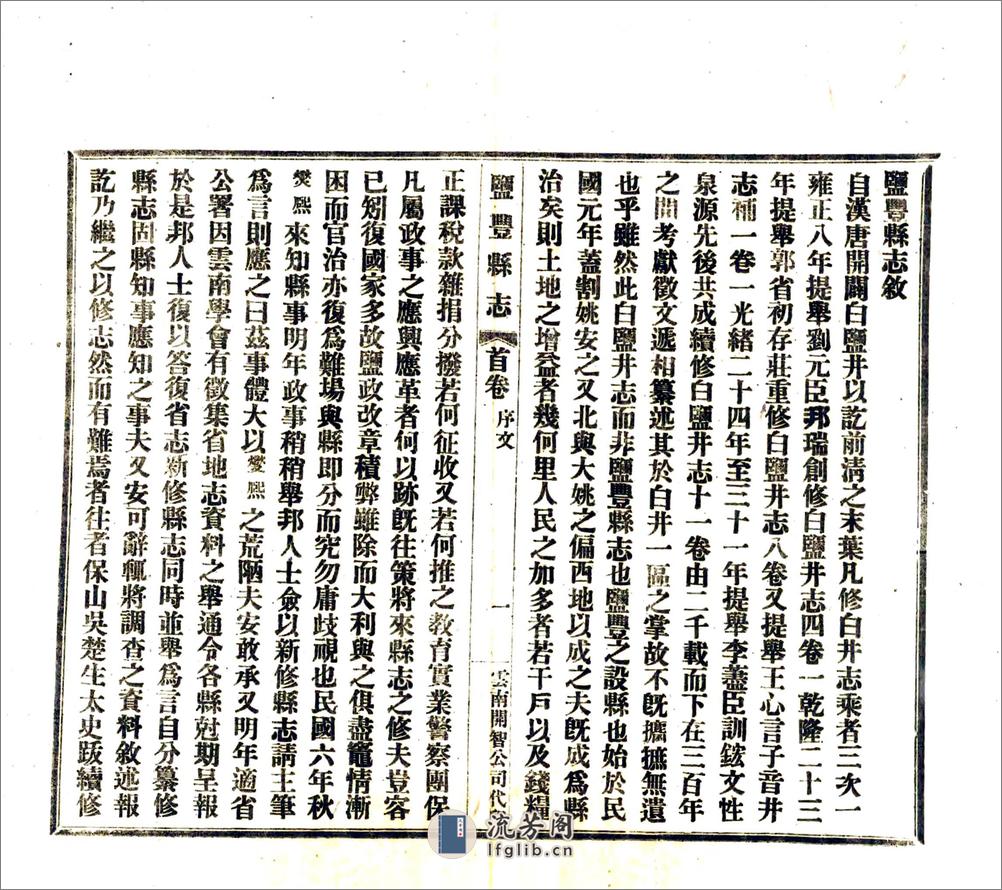 鹽豐縣志敘
自漢唐開闢白鹽井以訖前清之末葉凡修白井志乘者三次一
雍正八年提舉劉元臣邦瑞創修白鹽井志四卷一乾隆二十三
年提舉郭省初存莊重修白鹽井志八卷又提舉王心言子音井
志補一卷一光緒二十四年至三十一年提舉李藎臣訓鋐文性
泉源先後共成續修白鹽井志十一卷由二千載而下在三百年
之間考獻徵文遞相纂述其於白井一區之掌故不旣攟摭無遺
也乎雖然此白鹽井志而非鹽豐縣志也鹽豐之設縣也始於民
國元年蓋割姚安之又北與大姚之偏西地以成之夫旣成爲縣
治矣則土地之增益者幾何里人民之加多者若干戶以及錢糧
鹽豐縣志 首卷 序文 一 雲南開智公司代
正課稅款雜捐分撥若何征收又若何推之教育實業警察團保
凡屬政事之應興應革者何以跡旣往策將來縣志之修夫豈容
已矧復國家多故鹽政改章積弊雖除而大利與之俱盡竈情漸
困而官治亦復爲難場與縣卽分而究勿庸歧視也民國六年秋
爕熙來知縣事明年政事稍稍舉邦人士僉以新修縣志請主筆
爲言則應之曰茲事體大以爕熙之荒陋夫安敢承又明年適省
公署因雲南學會有徵集省地志資料之舉通令各縣尅期呈報
於是邦人士復以答復省志新修縣志同時並舉爲言自分纂修
縣志固縣知事應知之事夫又安可辭輒將調查之資料敘述報
訖乃繼之以修志然而有難焉者往者保山吳楚生太史跋續修
流芳阁
lfglib.cn